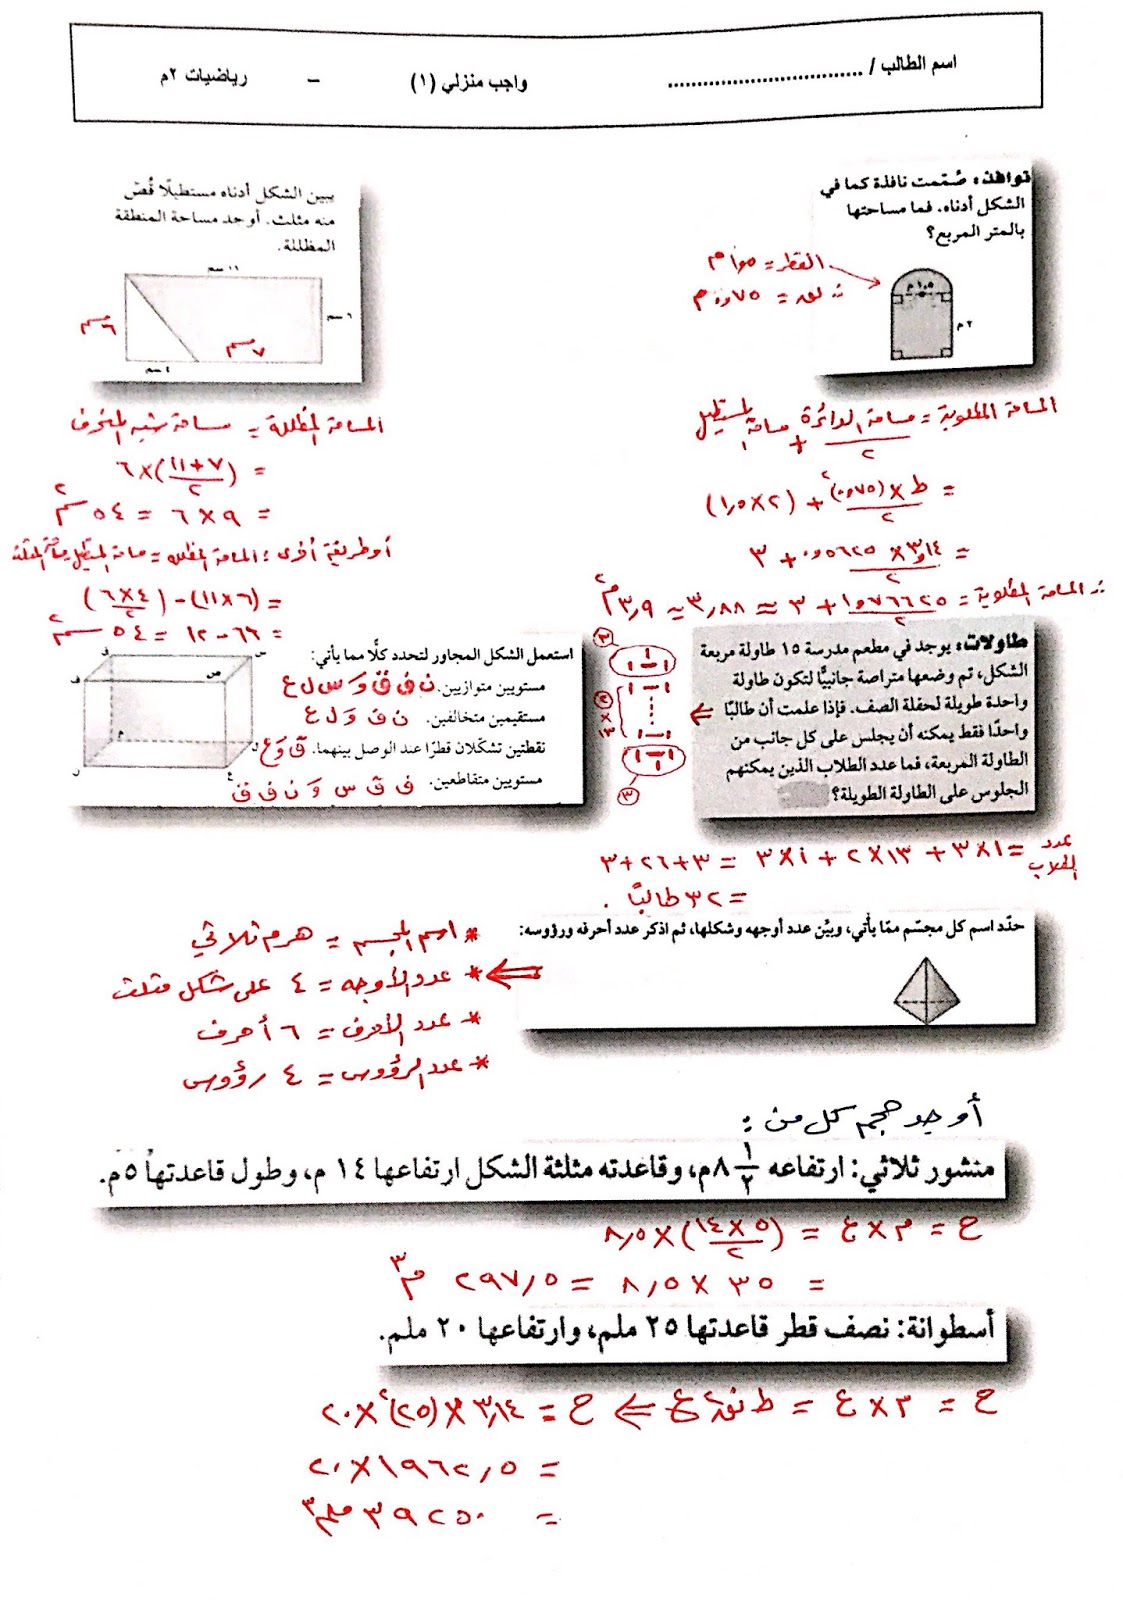 اسم الطالب / ................................ واجب منزلي (١) – رياضيات ٢م
نوافذ: صُممت نافذة كما في
الشكل أدناه. فما مساحتها
بالمتر المربع؟
القطر = ١,٥ م
∴ نق = ٠,٧٥ م
١,٥ م
٢ م
المساحة المطلوبة = مساحة الدائرة / ٢ + مساحة المستطيل
= ط × (٠,٧٥)٢ / ٢ + (٢ × ١,٥)
= ٣,١٤ × ٠,٥٦٢٥ / ٢ + ٣
∴ المساحة المطلوبة = ١,٧٦٦٢٥ / ٢ + ٣ ≈ ٣,٨٨ ≈ ٣,٩ م٢
يبين الشكل أدناه مستطيلًا قُصّ
منه مثلث. أوجد مساحة المنطقة
المظللة.
١١ سم
٦ سم
٦ سم
٧ سم
٤ سم
المساحة المظللة = مساحة شبه المنحرف
= (٧ + ١١ / ٢) × ٦
= ٩ × ٦ = ٥٤ سم٢
أو طريقة أخرى: المساحة المظللة = مساحة المستطيل - مساحة المثلث
= (٦ × ١١) – (٤ × ٦ / ٢)
= ٦٦ – ١٢ = ٥٤ سم٢
طاولات: يوجد في مطعم مدرسة ١٥ طاولة مربعة
الشكل، تم وضعها متراصة جانبيًّا لتكون طاولة
واحدة طويلة لحفلة الصف. فإذا علمت أن طالبًا
واحدًا فقط يمكنه أن يجلس على كل جانب من
الطاولة المربعة، فما عدد الطلاب الذين يمكنهم
الجلوس على الطاولة الطويلة؟
٣
١ ١ ١
٢
×
١٣
١ ١ ١
٣
عدد الطلاب = ١ × ٣ + ١٣ × ٢ + ١ × ٣ = ٣ + ٢٦ + ٣
= ٣٢ طالبًا .
استعمل الشكل المجاور لتحدد كلًّا مما يأتي:
مستويين متوازيين.
مستقيمين متخالفين. ن ف و ل ع
نقطتين تشكّلان قطرًا عند الوصل بينهما. ق و ع
مستويين متقاطعين.
س
ص
ف
م
ل
ع
ن
حدّد اسم كل مجسّم ممّا يأتي، وبيّن عدد أوجهه وشكلها، ثم اذكر عدد أحرفه ورؤوسه:
* اسم المجسم = هرم ثلاثي
* عدد الأوجه = ٤ على شكل مثلث
* عدد الأحرف = ٦ أحرف
* عدد الرؤوس = ٤ رؤوس
أوجد حجم كل من :
منشور ثلاثي: ارتفاعه ٨ ١/٢ م، وقاعدته مثلثة الشكل ارتفاعها ١٤ م، وطول قاعدتها ٥ م.
ح = م × ع = (٥ × ١٤ / ٢) × ٨,٥
= ٣٥ × ٨,٥ = ٢٩٧,٥ م٣
أسطوانة: نصف قطر قاعدتها ٢٥ ملم، وارتفاعها ٢٠ ملم.
ح = م × ع = ط نق٢ ع ⇐ ح = ٣,١٤ × (٢٥)٢ × ٢٠
= ١٩٦٢,٥ × ٢٠
= ٣٩٢٥٠ ملم٣